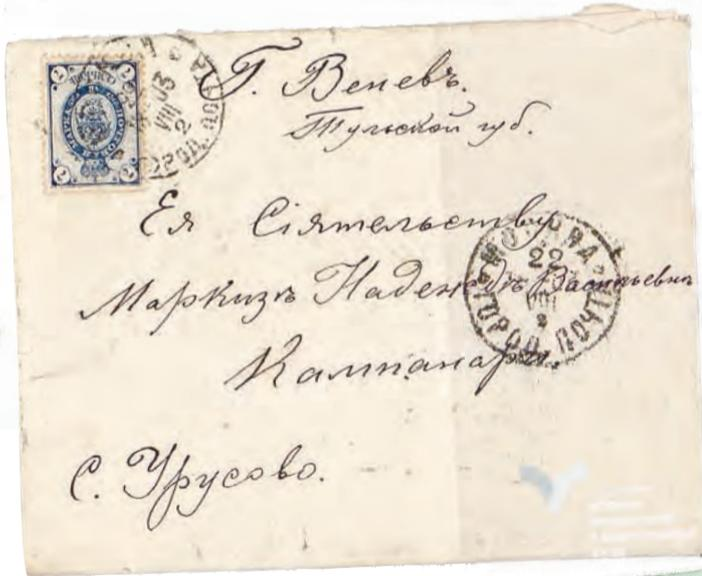 Г. Веневъ.
Тульской губ.
Ея Сіятельству
Маркизѣ Надеждѣ Васильевнѣ
Кампанари.
С. Урусово.
МОСКВА
22
VIII
ГОРОД. ПОЧТА